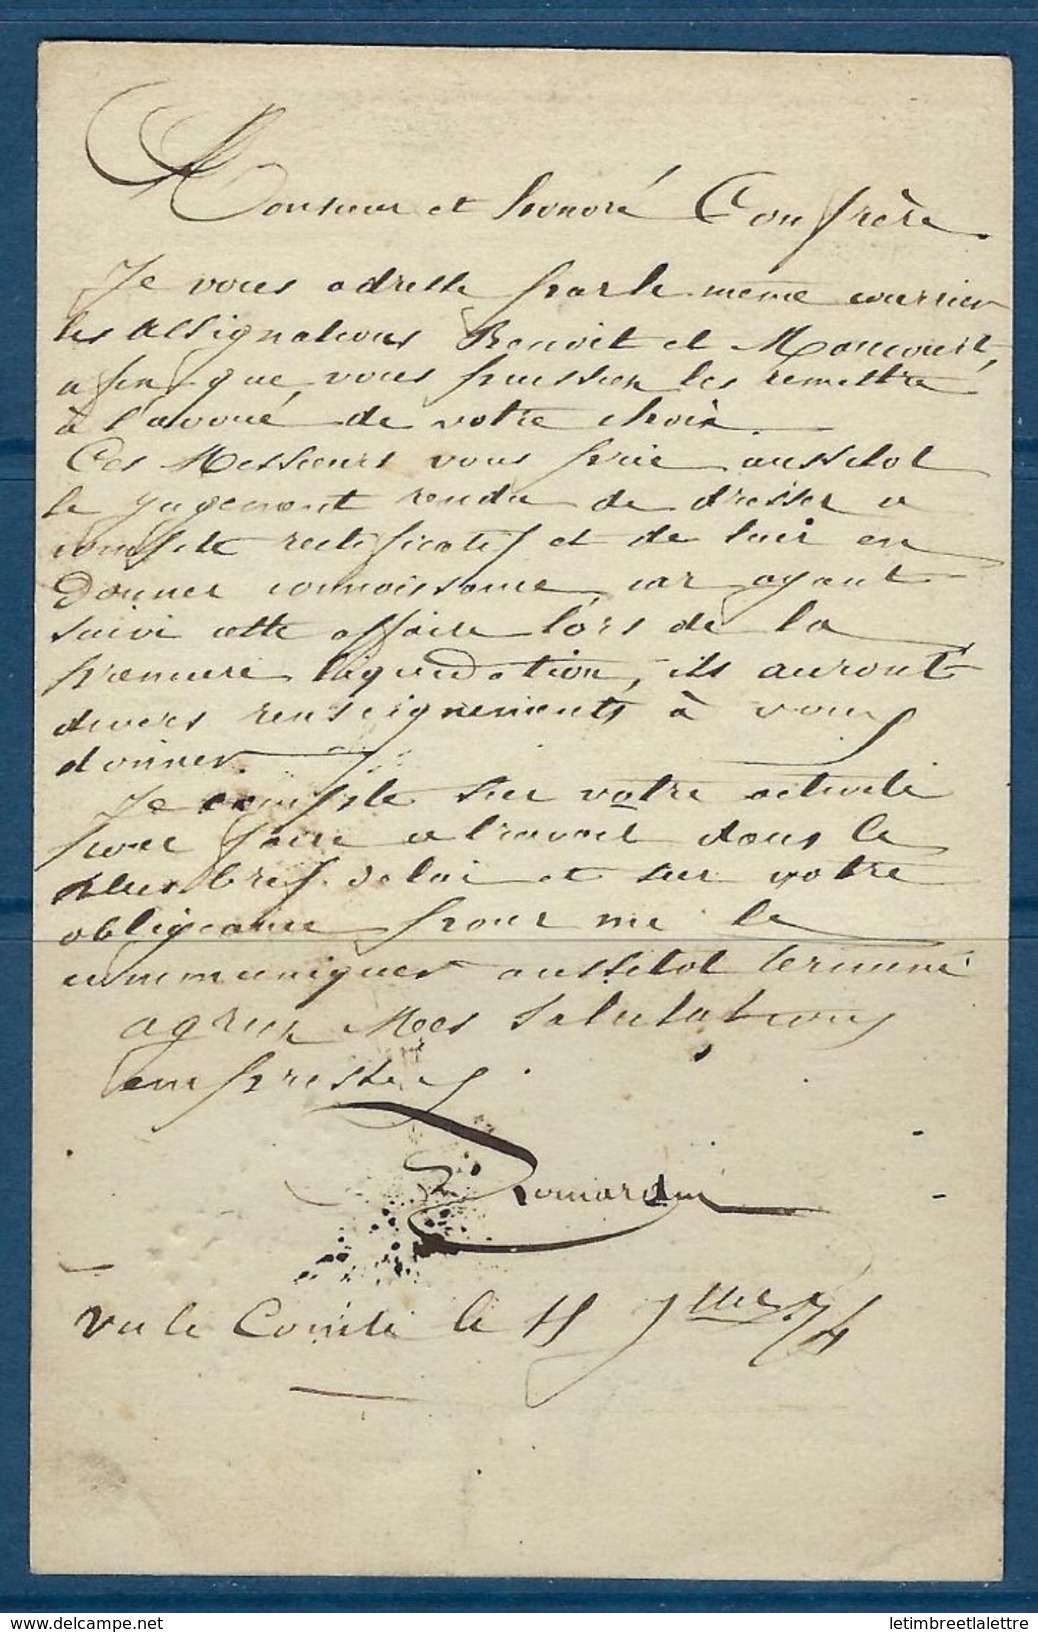 Monsieur et honoré Confrère
Je vous adresse par le même courrier
les assignations Benoit et Moncourt,
afin que vous puissiez les remettre
à l'avoué de votre choix.
Ces Messieurs vous prie aussitot
le jugement rendu de dresser u
compte rectificatif et de leur en
donner connoissance, car ayant
suivi cette affaire lors de la
premiere liquidation, ils auront
divers renseignements à vous
donner.
Je compte sur votre activité
pour faire ce travail dans le
plus bref delai et sur votre
obligeance pour me le
communiquer aussitot terminé
agreez Mes Salutations
empressées.
Romardin
Vu le Comte le 15 9bre 74
delcampe.net
letimbreetlalettre